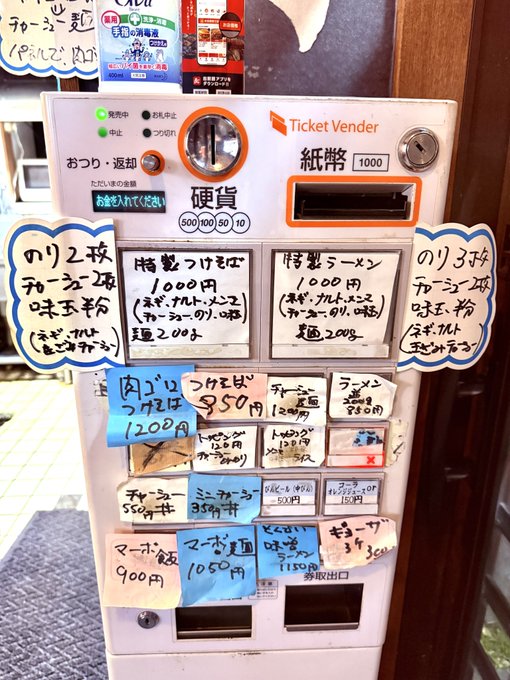 チャーシュー麺
薬用
洗浄・消毒
手指の消毒液
つけかえ用
400ml
自販機アプリを
ダウンロード
発売中
お札中止
中止
つり切れ
おつり・返却
ただいまの金額
お金を入れてください
硬貨
500 100 50 10
Ticket Vender
紙幣 1000
のり2枚
チャーシュー2枚
味玉 粉
(ネギ、ナルト
特製つけそば
1000円
(ネギ、ナルト、メンマ
チャーシュー、のり、味玉)
麺200g
特製ラーメン
1000円
(ネギ、ナルト、メンマ
チャーシュー、のり、味玉)
麺200g
のり3枚
チャーシュー2枚
味玉 粉
(ネギ、ナルト
肉ゴロ
つけそば
1200円
つけそば
850円
チャーシュー
麺
1200円
ラーメン
並 200g
850円
トッピング
120円
チャーシュー
のり
トッピング
150円
ライス
チャーシュー
550円 丼
ミニチャーシュー
350円 丼
びんビール(中びん)
500円
コーラ or
オレンジジュース
150円
マーボ飯
900円
マーボ麺
1050円
味噌
ラーメン
1150円
ギョーザ
3ケ 300
券取出口